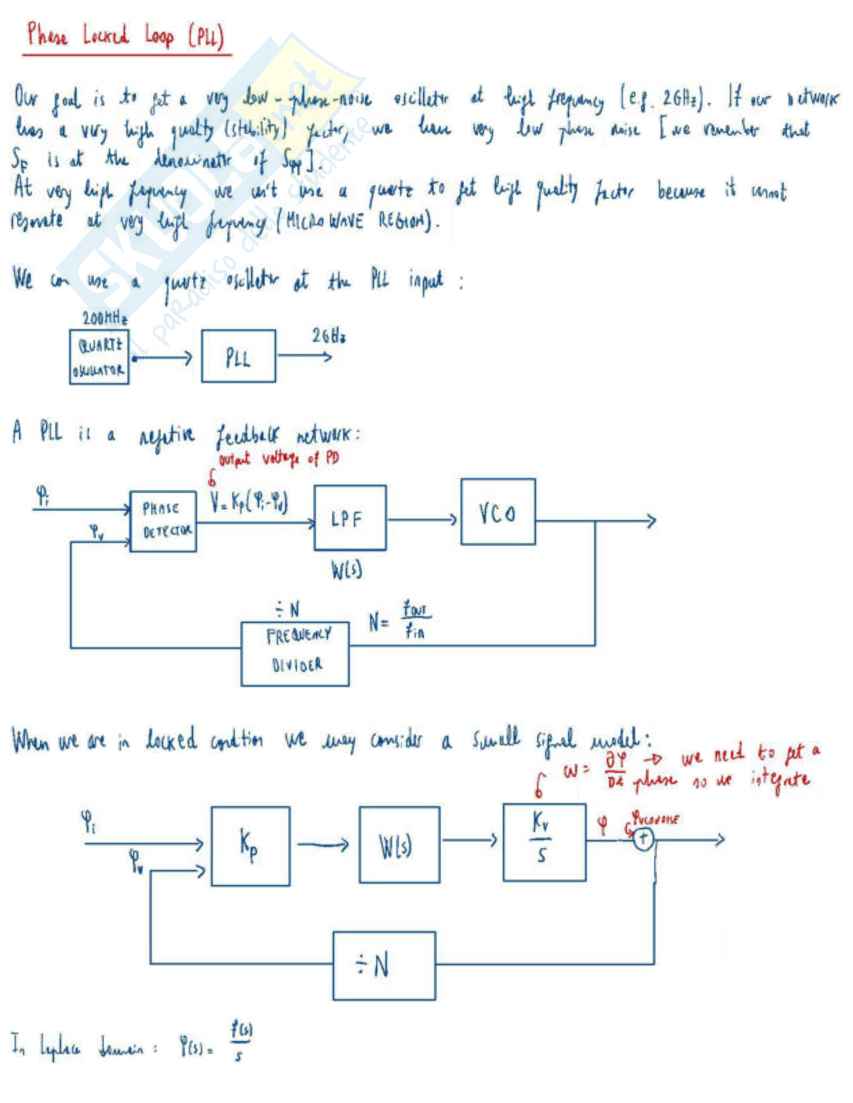 Phase Locked Loop (PLL)
Our goal is to get a very low-phase-noise oscillator at high frequency (e.g. 2GHz). If our network
has a very high quality (stability) factor, we have very low phase noise [we remember that
S_F is at the denominator of S_φφ].
At very high frequency we can't use a quartz to get high quality factor because it cannot
resonate at very high frequency (MICROWAVE REGION).
We can use a quartz oscillator at the PLL input:
200MHz
QUARTZ
OSCILLATOR
PLL
2GHz
A PLL is a negative feedback network:
output voltage of PD
φi
PHASE
DETECTOR
V = Kp(φi-φv)
LPF
VCO
φv
W(s)
÷N
FREQUENCY
DIVIDER
N = fout/fin
When we are in locked condition we may consider a small signal model:
ω = ∂φ/∂t → we need to get a
phase so we integrate
φi
Kp
W(s)
Kv/s
φ
φVCONOISE
+
φv
÷N
In Laplace domain: φ(s) = f(s)/s
SKUOLA.net
il paradiso dello studente